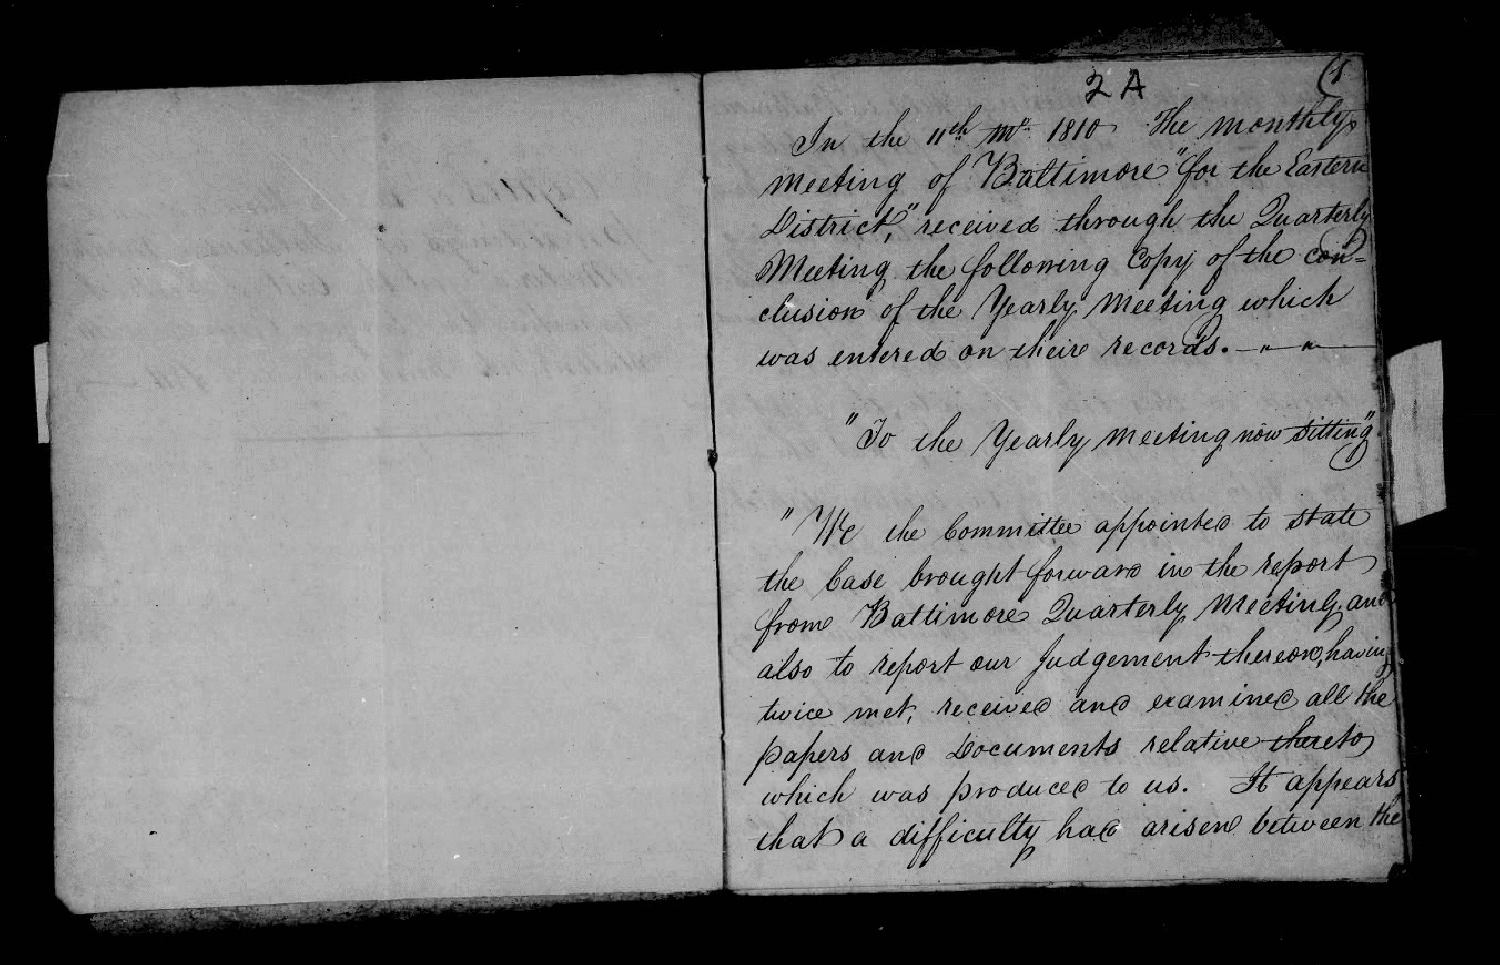 2 A
(1
In the 11th mo. 1810 The monthly
meeting of Baltimore "for the Eastern
District," received through the Quarterly
Meeting the following Copy of the con=
clusion of the Yearly Meeting which
was entered on their records. — " — " —
"To the Yearly meeting now sitting"
"We the Committee appointed to state
the Case brought forward in the report
from Baltimore Quarterly Meeting, and
also to report our Judgement thereon, having
twice met, received and examined all the
papers and Documents relative thereto
which was produced to us. It appears
that a difficulty had arisen between the